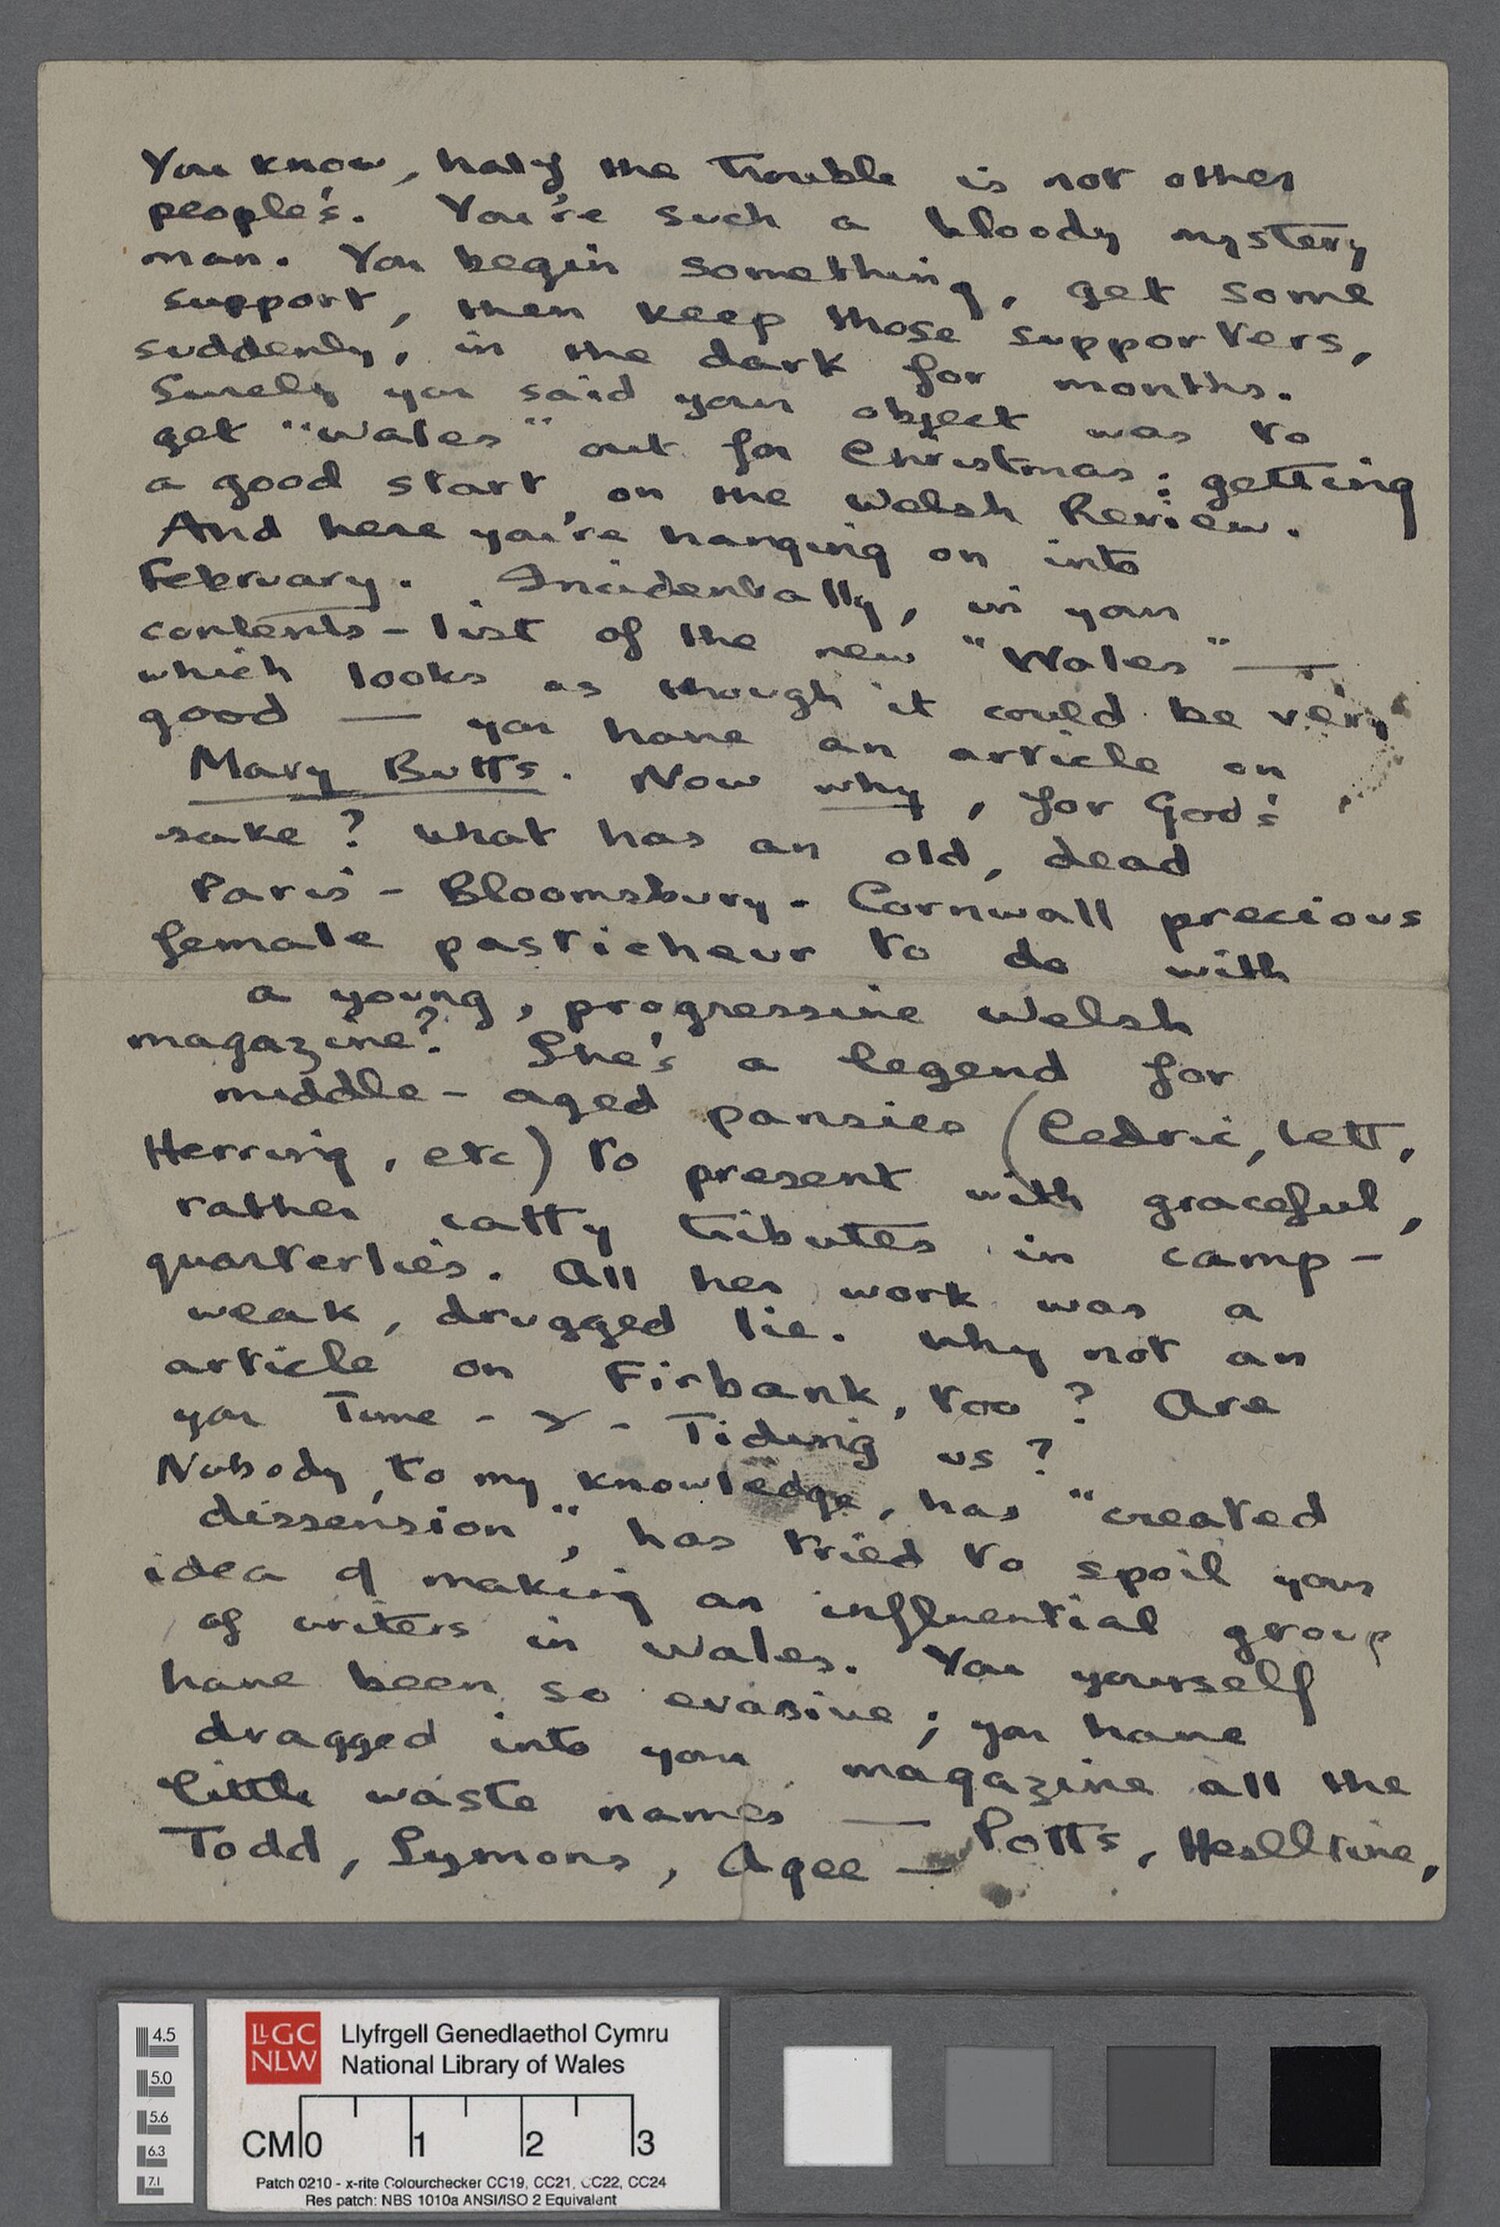 You know, half the trouble is not other
people's. You're such a bloody mystery
man. You begin something, get some
support, then keep those supporters,
suddenly, in the dark for months.
Surely you said your object was to
get "Wales" out for Christmas: getting
a good start, on the Welsh Review.
And here you're hanging on into
February. Incidentally, in your
contents-list of the new "Wales" —
which looks as though it could be very
good — you have an article on
Mary Butts. Now why, for God's
sake? What has an old, dead
Paris-Bloomsbury-Cornwall precious
female pasticheur to do with
a young, progressive Welsh
magazine? She's a legend for
middle-aged pansies (Cedric, Lett,
Herring, etc) to present with graceful,
rather catty tributes in camp-
quarterlies. All her work was a
weak, drugged lie. Why not an
article on Firbank, too? Are
you Time-&-Tiding us?
Nobody, to my knowledge, has "created
dissension", has tried to spoil your
idea of making an influential group
of writers in Wales. You yourself
have been so evasive; you have
dragged into your magazine all the
little waste names — Potts, Heseltine,
Todd, Symons, Agee —
4.5
5.0
5.6
6.3
7.1
LLGC
NLW
Llyfrgell Genedlaethol Cymru
National Library of Wales
CM 0 1 2 3
Patch 0210 - x-rite Colourchecker CC19, CC21, CC22, CC24
Res patch: NBS 1010a ANSI/ISO 2 Equivalent